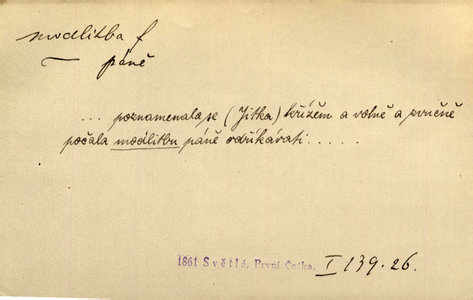 modlitba f
— páně
... poznamenala se (Jitka) křížem a volně a zvučně
počala modlitbu páně odříkávati.....
1861 Světlá, První Češka. I 139.26.